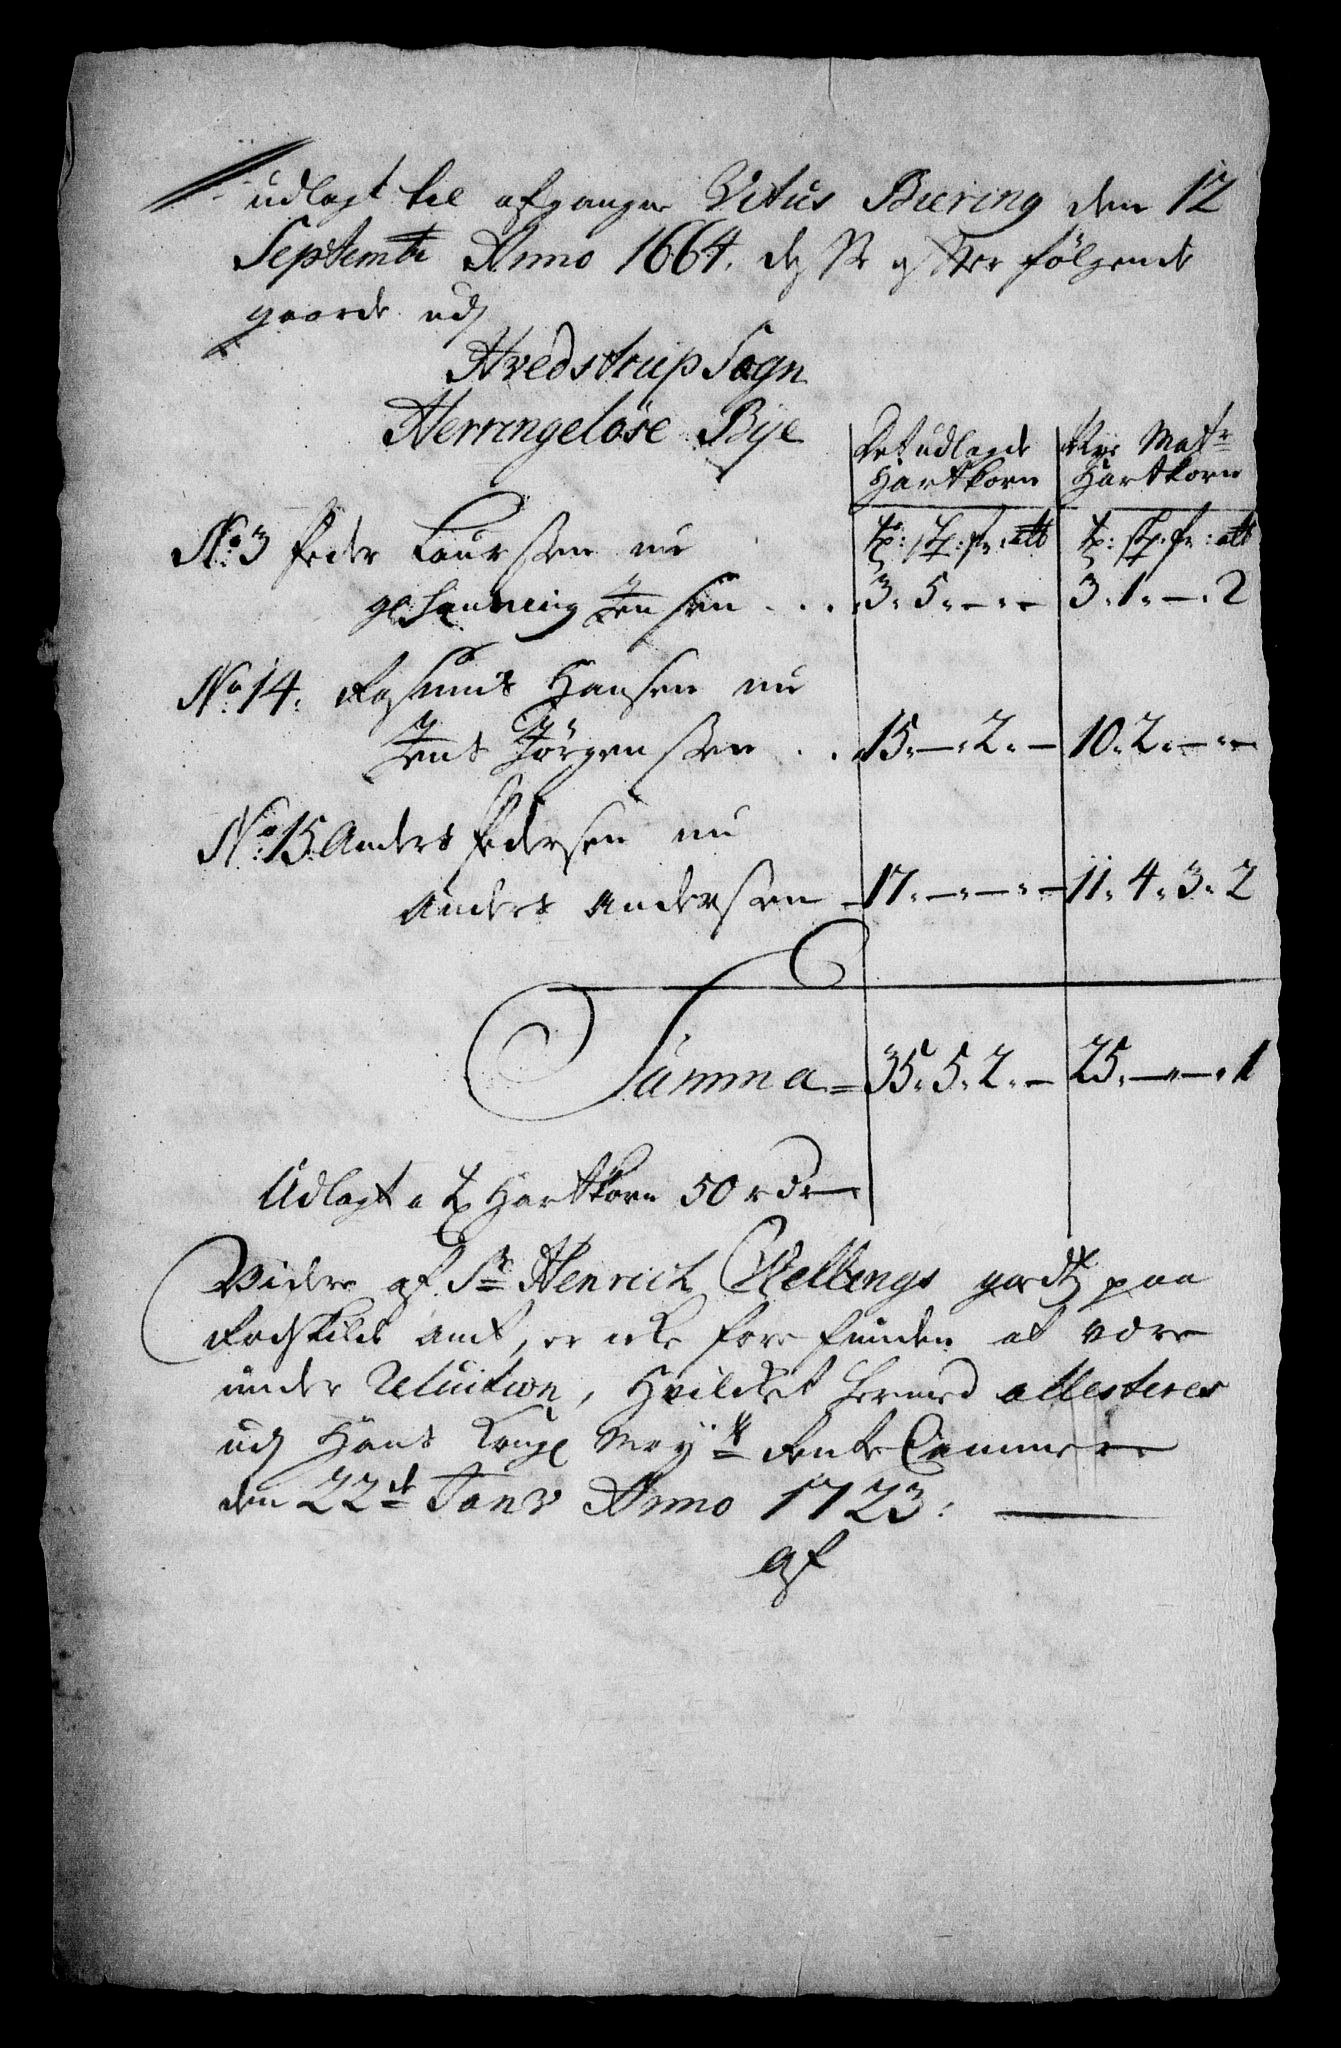 udlagt til afgangne Vitus Biering den 12
Septembr Anno 1664. desse efter følgende
gaarde udj
Hvedstrup Sogn
Herringeløse Bye
Det udlagde Nye Matr
Hartkorn Hartkorn
No 3 Peder Laurssen nu tø: skp: fr: alb tø: skp: fr: alb
Henning Jensen . . . 3. 5. – . – 3. 1. – . 2
No 14. Rasmus Hansen nu
Jens Jørgenssen . . 15. – . 2. – 10. 2. – . –
No 15 Anders Pedersen nu
Anders Anderssen – 17. – . – . – 11. 4. 3. 2
Summa = 35. 5. 2. – 25. – . – . 1
Udlagt a tø Hartkorn 50 rdr
Videre af Sr Henrich Wellings godtz paa
Rodskilde Amt, er icke forefunden at være
under Reluition, hvilcket hermed attesteres
udj Hans Kongl Mayts Rente Cammer
den 22de Janr Anno 1723.
af